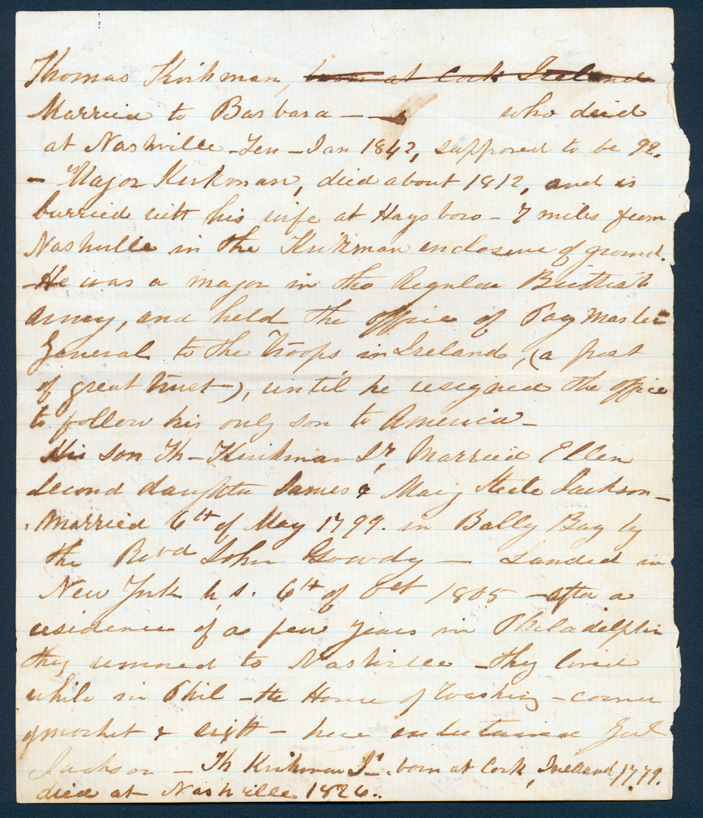 Thomas Kirkman, born at Cork Ireland
Married to Barbara — who died
at Nashville – Ten – Jan 1842, supposed to be 92.
– Major Kirkman, died about 1812, and is
burried with his wife at Haysboro – 7 miles from
Nashville in the Kirkman enclosure of ground.
– He was a major in the Regular Brittish
army, and held the office of Pay Master
General to the Troops in Ireland, (a post
of great trust), until he resigned the office
to follow his only son to America –
His son Th – Kirkman Jr, Married Ellen
second daughter James & Mary Steele Jackson –
Married 6th of May 1799. in Bally Bay by
the Revd John Gowdy – Landed in
New York U.S. 6th of Oct 1805 – after a
residence of a few years in Philadelphia
they removed to Nashville – they lived
while in Phil – the House of – corner
of market & eight – here entertained Genl
Jackson – Th Kirkman Jr. born at Cork, Ireland, 1779.
died at Nashville 1826.